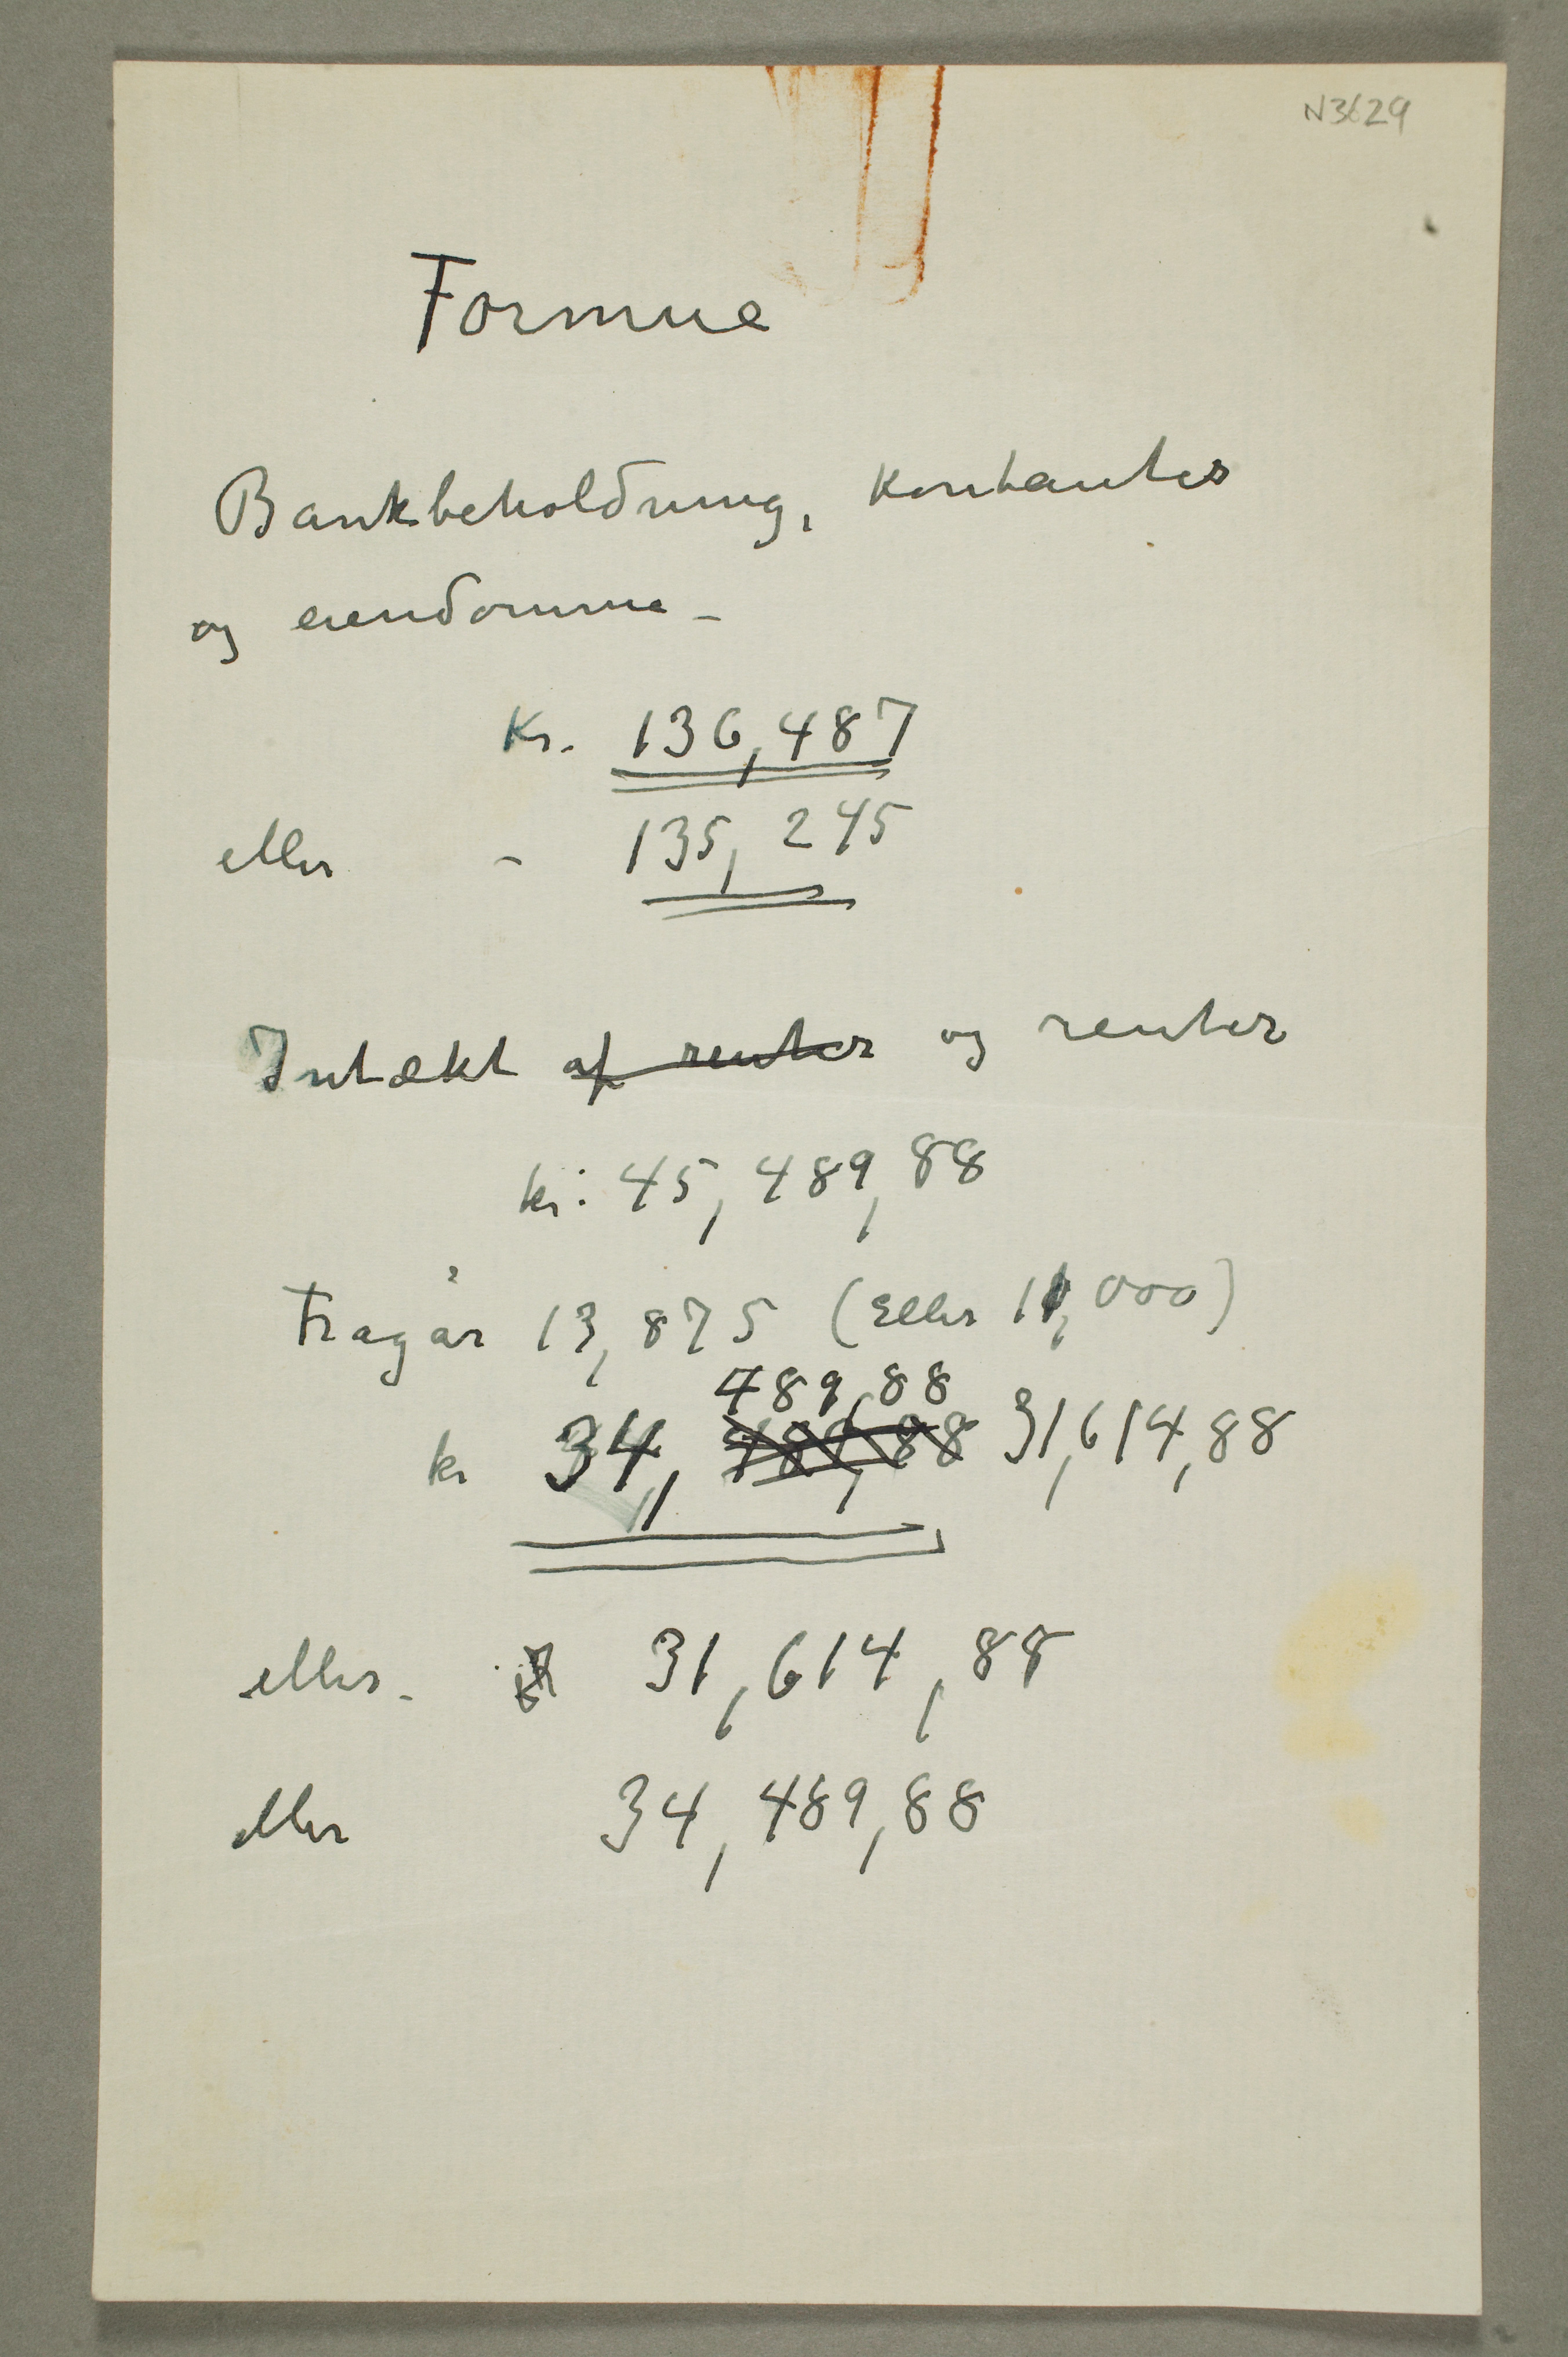 N3629
Formue
Bankbeholdning, kontanter
og eiendomme -
Kr. 136,487
eller - 135,245
Intækt af renter og renter
kr: 45,489,88
Fragår 13,875 (eller 11,000)
489,88
kr 34, 489,88 31,614,88
eller - 31,614,88
eller 34,489,88